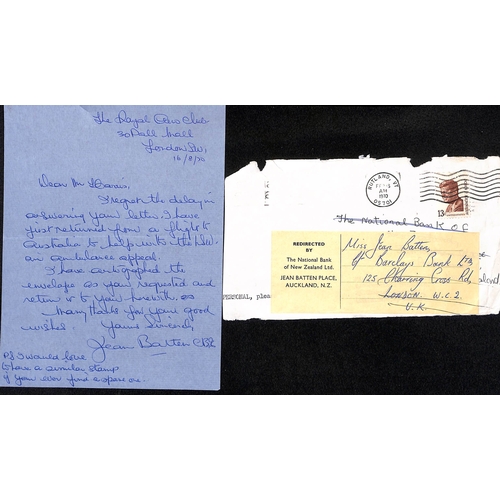 The Royal Aero Club
Pall Mall
London SW1
16/8/70
Dear Mr
I regret the delay in
answering your letter. I have
just returned from a flight to
Australia to help with the
air ambulance appeal.
I have autographed the
envelope as you requested and
return it to you herewith.
Many thanks for your good
wishes Yours sincerely
Jean Batten CBE
PS I would love
to have a similar stamp
if you ever find a spare one.
RUTLAND, VT
AM
1970
05701
13c
The National Bank OF
REDIRECTED
BY
The National Bank
of New Zealand Ltd.
JEAN BATTEN PLACE,
AUCKLAND, N.Z.
Miss Jean Batten
c/o Barclays Bank Ltd,
125, Charing Cross Rd,
LONDON. W.C.2.
U.K.
PERSONAL, pleas